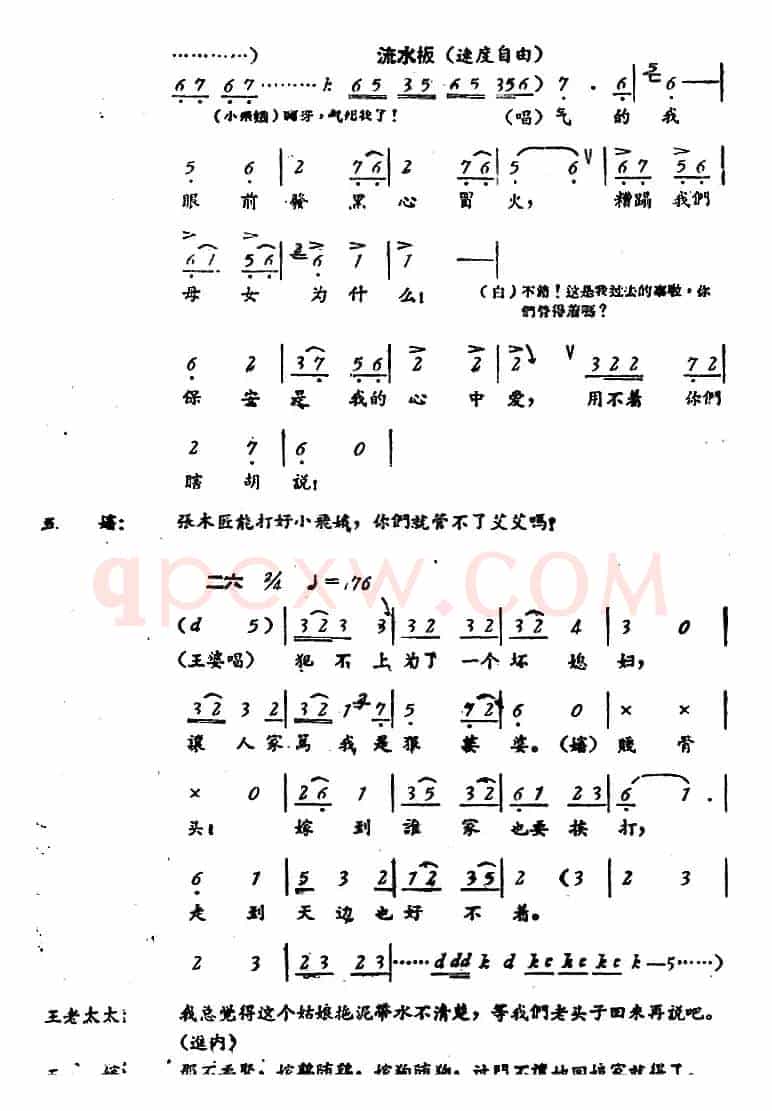 …………） 流水板（速度自由）
6 7 6 7 ………… 6 5 3 5 6 5 3 5 6 ） 7 . 6 | 6 —— |
（小飛娥）啊呀，气死我了！ （唱）气 的 我
5 6 | 2 7 6 | 2 7 6 | 5 6 ∨ | 6 7 5 6 |
眼 前 發 黑 心 冒 火， 糟蹋 我們
6 1 5 6 | 6 1 | 1 —— |
母 女 为 什 么！ （白）不錯！这是我过去的事啦，你
們管得着嗎？
6 2 | 3 7 5 6 | 2 2 | 2 ∨ 3 2 2 7 2 |
保 安 是 我的 心 中 爱， 用不着 你們
2 7 | 6 0 |
瞎 胡 說！
五 嬸： 張木匠能打好小飛娥，你們就管不了艾艾嗎？
二六 2/4 ♩=176
qpcxw.com
（d 5）| 3 2 3 3 | 3 2 3 2 | 3 2 4 | 3 0 |
（王婆唱） 犯 不 上 为了 一个 坏 媳 妇，
3 2 3 2 | 3 2 1 7 | 5 7 2 | 6 0 | × × |
讓 人 家 罵 我 是 狠 婆 婆。（嬸）賤 骨
× 0 | 2 6 1 | 3 5 3 2 | 6 1 2 3 | 6 1 . |
头！ 嫁 到 誰 家 也要 挨 打，
6 1 | 5 3 2 | 1 2 3 5 | 2 （3 | 2 3 |
走 到 天 边 也 好 不 着。
2 3 | 2 3 2 3 | …… d dd k d kc kc kc k — 5 ……）
王老太太： 我总觉得这个姑娘拖泥帶水不清楚，等我們老头子回来再說吧。
（進内）